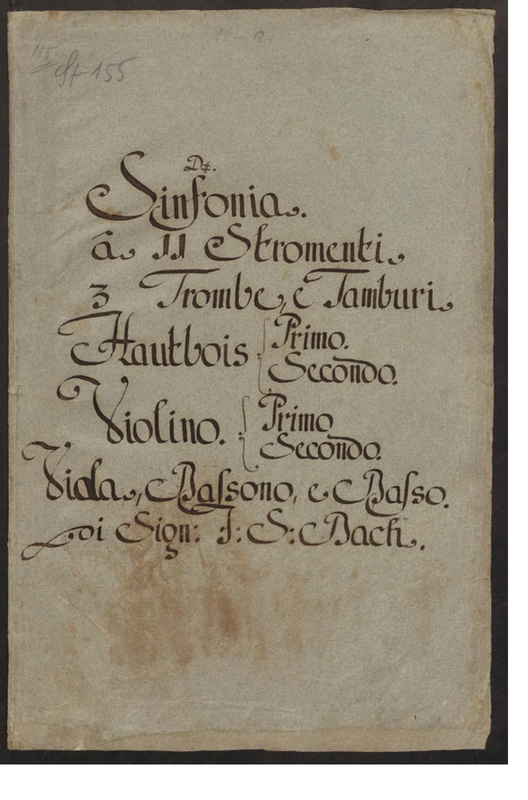 155
St 155
D♯.
Sinfonia.
â 11 Stromenti.
3 Trombe, è Tamburi.
Hautbois { Primo.
Secondo.
Violino. { Primo
Secondo.
Viola, Bassono, e Basso.
Di Sign: J: S: Bach.